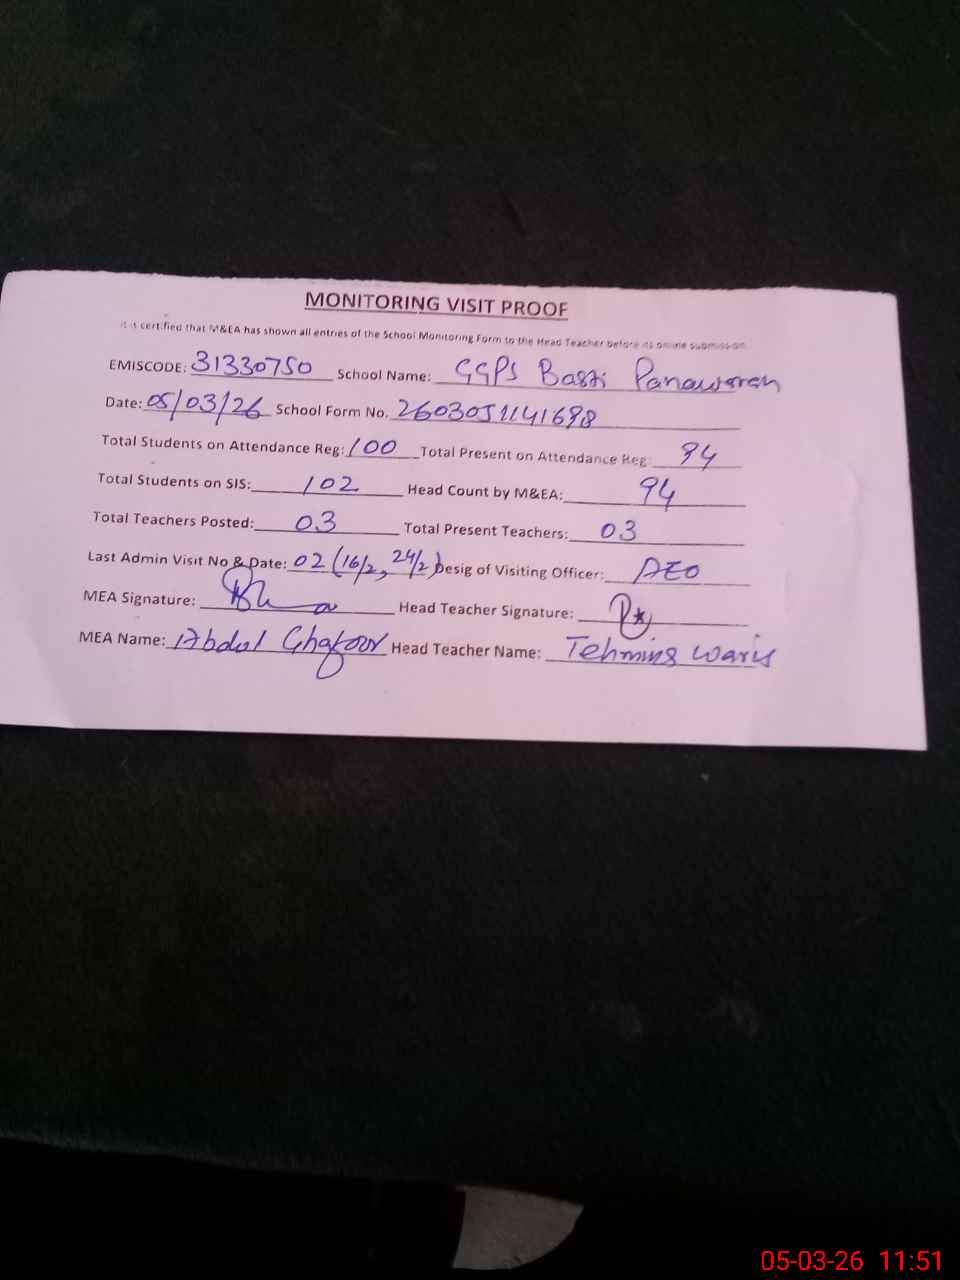 MONITORING VISIT PROOF
It is certified that M&EA has shown all entries of the School Monitoring Form to the Head Teacher before its online submission.
EMISCODE: 31330750 School Name: GGPS Basti
Date: 05/03/26 School Form No. 2603051141698
Total Students on Attendance Reg: 100 Total Present on Attendance Reg: 94
Total Students on SIS: 102 Head Count by M&EA: 94
Total Teachers Posted: 03 Total Present Teachers: 03
Last Admin Visit No & Date: 02 (16/2, 24/2) Desig of Visiting Officer: AEO
MEA Signature: Head Teacher Signature:
MEA Name: Abdul Ghafoor Head Teacher Name: Tehmina Waris
05-03-26 11:51